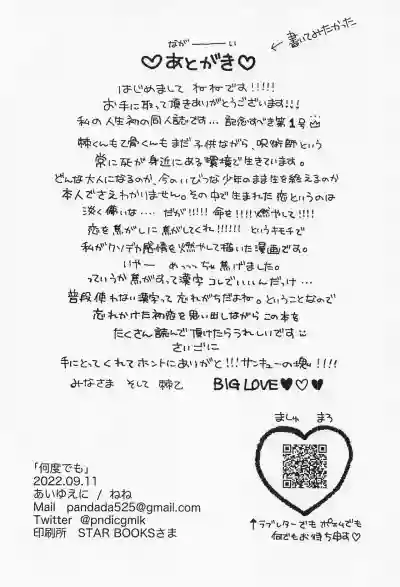 なが――い
♡あとがき♡
←書いてみたかった
はじめまして ねねです!!!!!
お手に取って頂きありがとうございます!!!
私の人生初の同人誌です… 記念すべき第1号
棘くんもて骨くんもまだ子供ながら、呪術師という
常に死が身近にある環境で生きています。
どんな大人になるのか、今のいびつな少年のまま生を終えるのか
本人でさえわかりません。その中で生まれた恋というのは
淡く儚いな…. だが!!!! 命を!!!!燃やして!!!!
恋を焦がしに焦がしてくれ!!!!!! というキモチで
私がクソデカ感情を燃やして描いた漫画です。
いやー めっっっちゃ焦げました。
っていうか焦がすって漢字 コレでいいんだけ…
普段使わない漢字って 忘れがちだよね。ということなので
忘れかけた初恋を思い出しながら この本を
たくさん読んで頂けたらうれしいです
さいごに
手にとってくれてホントにありがと!!!サンキューの塊!!!!
みなさま そして 棘乙 BIG LOVE♥♡♥
ましゅ まろ
↑ラブレターでも ポエムでも
何でもお待ち申す♡
「何度でも」
2022.09.11
あいゆえに / ねね
Mail pandada525@gmail.com
Twitter @pndicgmlk
印刷所 STAR BOOKSさま